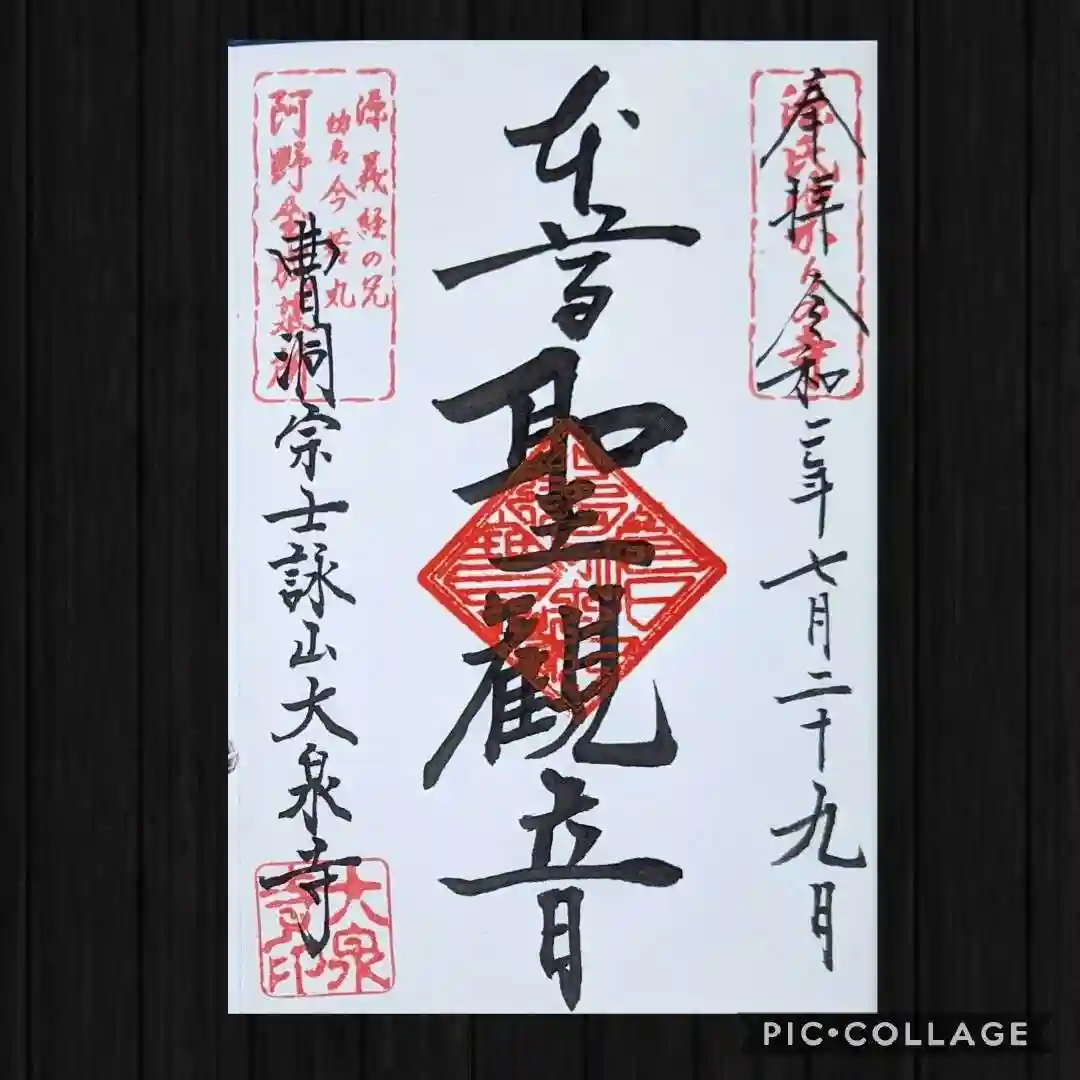 奉拝 令和二年七月二十九日
本尊 聖観音
源義経の兄
幼名今若丸
阿野全成
曹洞宗士詠山大泉寺
大泉寺印
PIC•COLLAGE